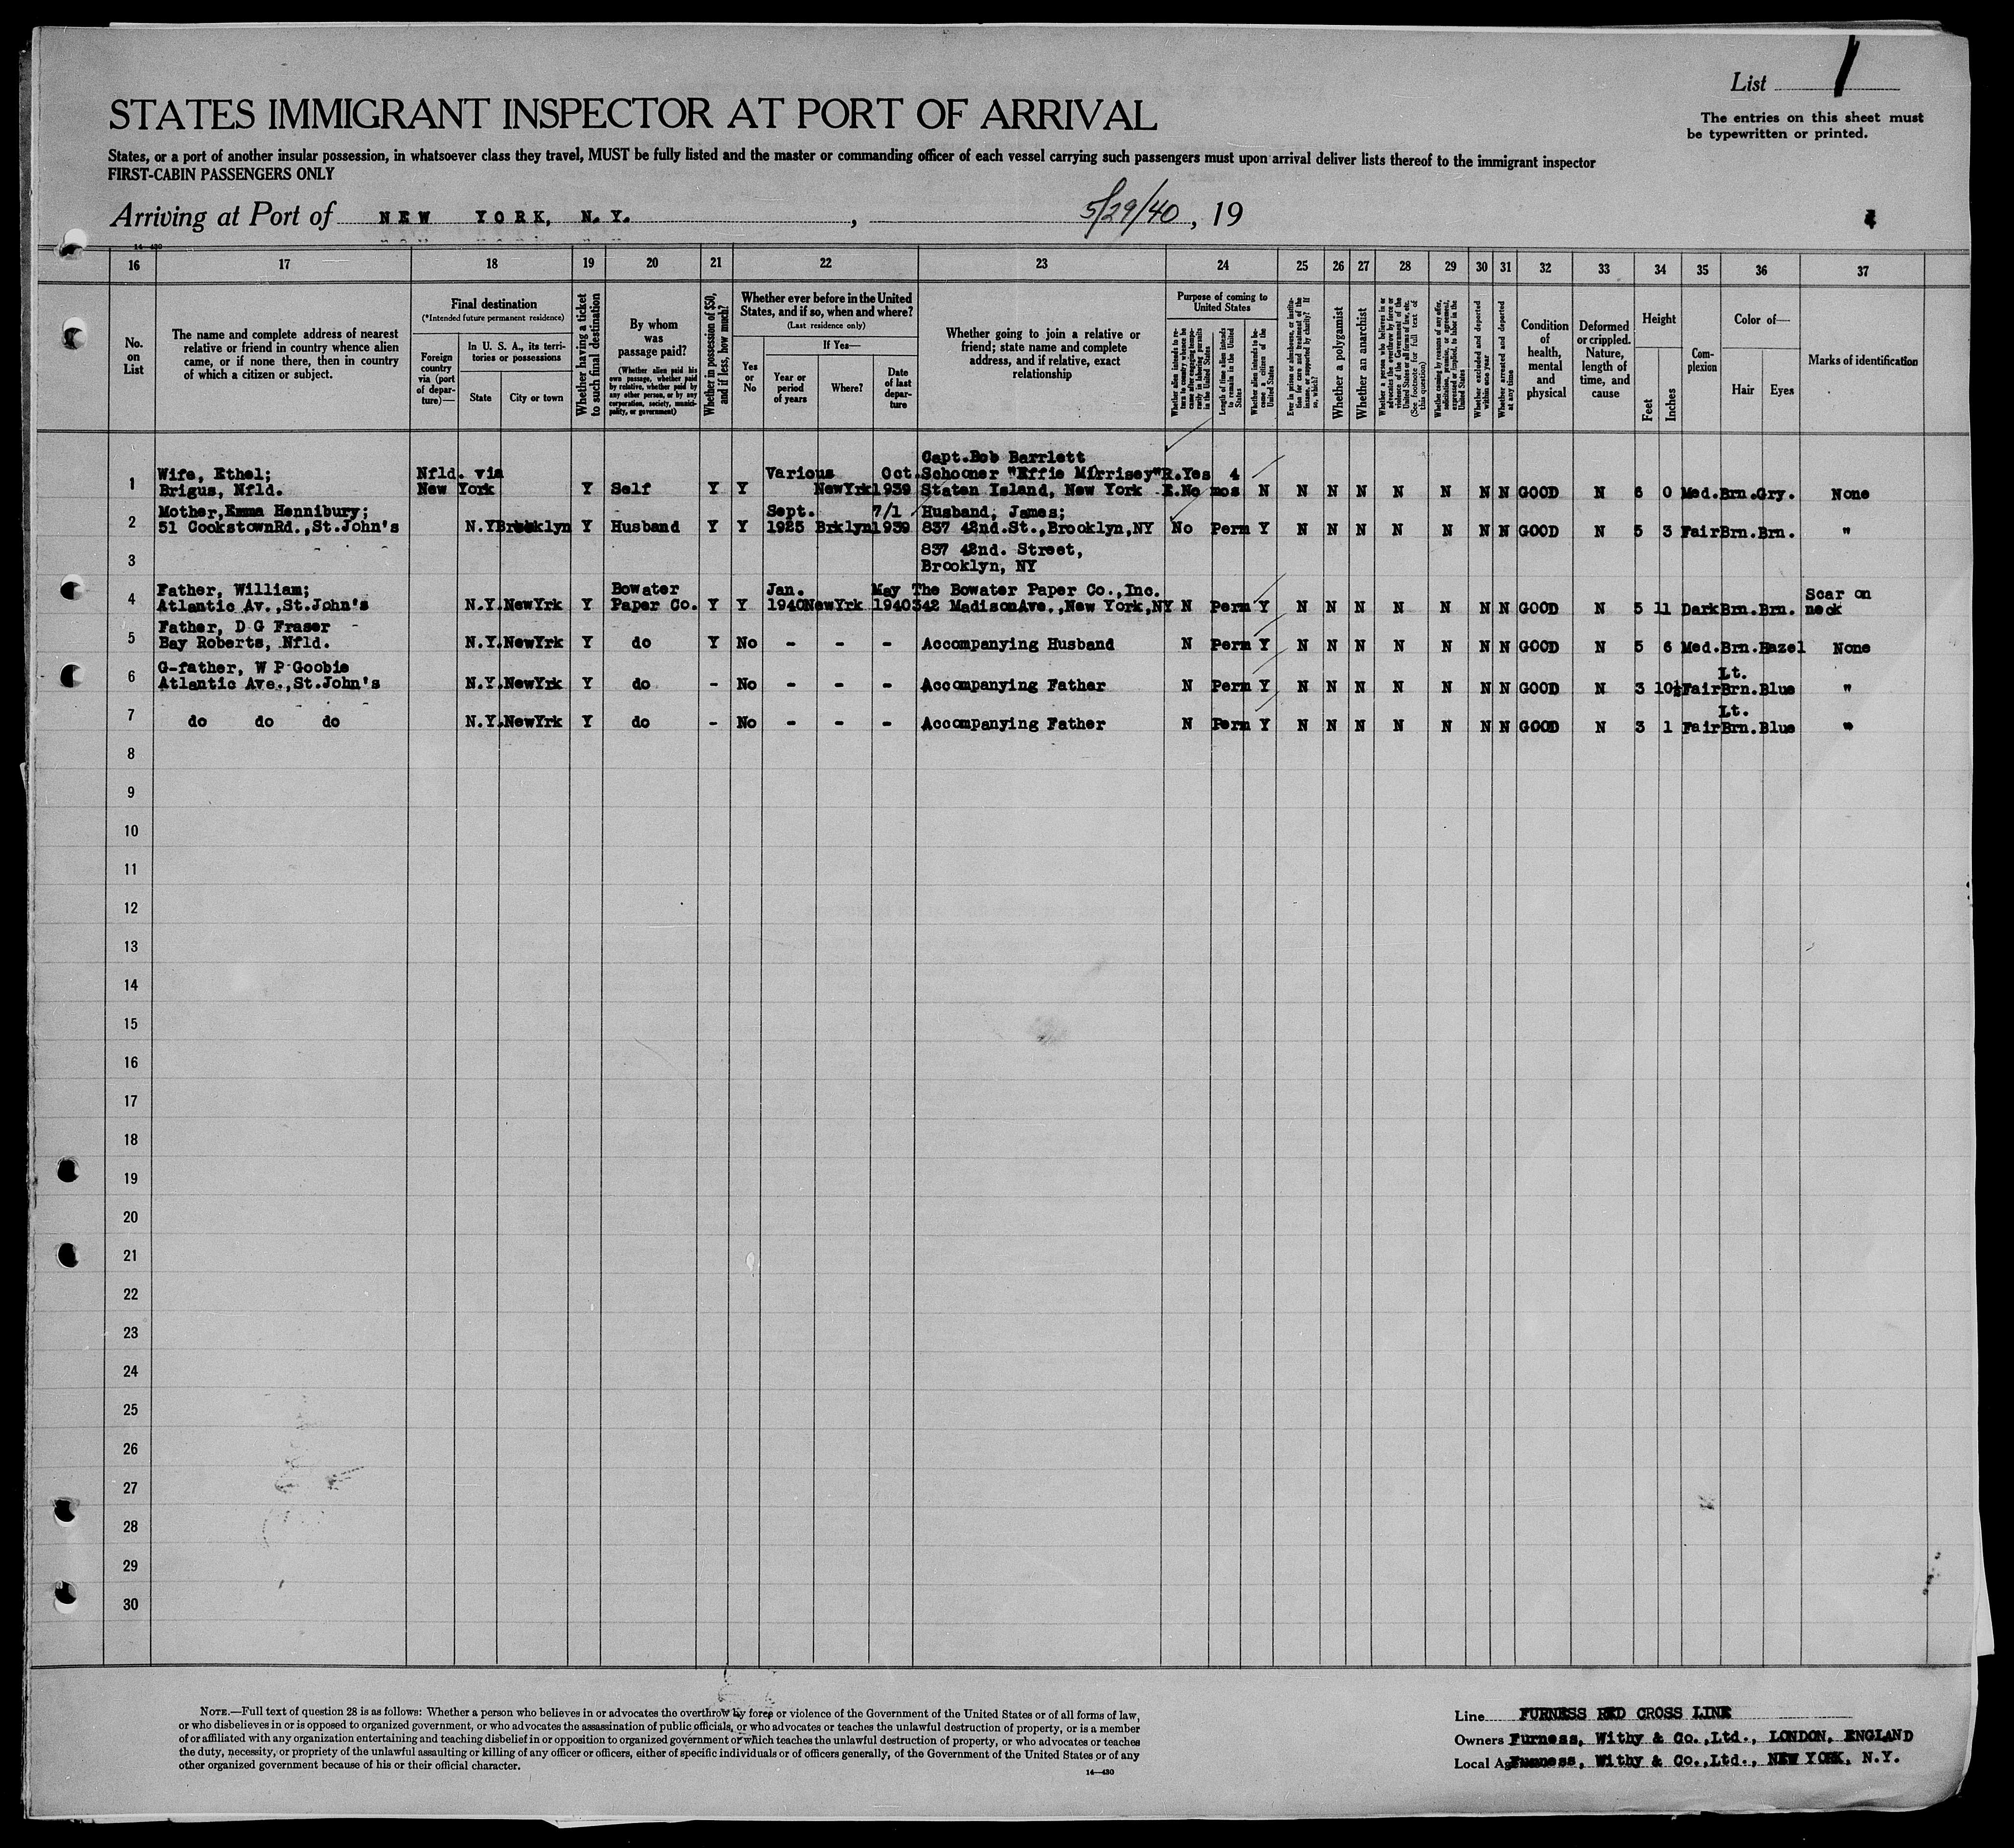 List 1
The entries on this sheet must
be typewritten or printed.
STATES IMMIGRANT INSPECTOR AT PORT OF ARRIVAL
States, or a port of another insular possession, in whatsoever class they travel, MUST be fully listed and the master or commanding officer of each vessel carrying such passengers must upon arrival deliver lists thereof to the immigrant inspector
FIRST-CABIN PASSENGERS ONLY
Arriving at Port of NEW YORK, N.Y. , 5/29/40 , 19
14-430
16 17 18 19 20 21 22 23 24 25 26 27 28 29 30 31 32 33 34 35 36 37
No. on List
The name and complete address of nearest relative or friend in country whence alien came, or if none there, then in country of which a citizen or subject.
Final destination
(*Intended future permanent residence)
Foreign country via (port of departure)—
In U. S. A., its territories or possessions
State
City or town
Whether having a ticket to such final destination
By whom was passage paid?
(Whether alien paid his own passage, whether paid by relative, whether paid by any other person, or by any corporation, society, municipality, or government)
Whether in possession of $50, and if less, how much?
Whether ever before in the United States, and if so, when and where?
(Last residence only)
Yes or No
If Yes—
Year or period of years
Where?
Date of last departure
Whether going to join a relative or friend; state name and complete address, and if relative, exact relationship
Purpose of coming to United States
Whether alien intends to return to country whence he came after engaging temporarily in laboring pursuits in the United States
Length of time alien intends to remain in the United States
Whether alien intends to become a citizen of the United States
Ever in prison or almshouse, or institution for care and treatment of the insane, or supported by charity? If so, which?
Whether a polygamist
Whether an anarchist
Whether a person who believes in or advocates the overthrow by force or violence of the Government of the United States or all forms of law, etc. (See footnote for full text of this question)
Whether coming by reasons of any offer, solicitation, promise, or agreement, expressed or implied, to labor in the United States
Whether excluded and deported within one year
Whether arrested and deported at any time
Condition of health, mental and physical
Deformed or crippled. Nature, length of time, and cause
Height
Feet
Inches
Complexion
Color of—
Hair
Eyes
Marks of identification
Capt.Bob Barrlett
Wife, Ethel; Nfld. via Various Oct. Schooner "Effie Mirrisey" R.Yes 4
1 Brigus, Nfld. New York Y Self Y Y NewYrk 1939 Staten Island, New York E.No mos N N N N N N N N GOOD N 6 0 Med. Brn. Gry. None
Mother,Emma Hennibury; Sept. 7/1 Husband, James;
2 51 CookstownRd.,St.John's N.Y Brooklyn Y Husband Y Y 1925 Brklyn 1939 837 42nd.St.,Brooklyn,NY No Perm Y N N N N N N N GOOD N 5 3 Fair Brn. Brn. "
837 42nd. Street,
3 Brooklyn, NY
Father, William; Bowater Jan. May The Bowater Paper Co.,Inc. Scar on
4 Atlantic Av.,St.John's N.Y. NewYrk Y Paper Co. Y Y 1940 NewYrk 1940 342 MadisonAve.,New York,NY N Perm Y N N N N N N N GOOD N 5 11 Dark Brn. Brn. neck
Father, D G Fraser
5 Bay Roberts, Nfld. N.Y. NewYrk Y do Y No - - - Accompanying Husband N Perm Y N N N N N N N GOOD N 5 6 Med. Brn. Hazel None
G-father, W P Goobie Lt.
6 Atlantic Ave.,St.John's N.Y. NewYrk Y do - No - - - Accompanying Father N Perm Y N N N N N N N GOOD N 3 10½ Fair Brn. Blue "
Lt.
7 do do do N.Y. NewYrk Y do - No - - - Accompanying Father N Perm Y N N N N N N N GOOD N 3 1 Fair Brn. Blue "
8
9
10
11
12
13
14
15
16
17
18
19
20
21
22
23
24
25
26
27
28
29
30
NOTE.—Full text of question 28 is as follows: Whether a person who believes in or advocates the overthrow by force or violence of the Government of the United States or of all forms of law,
or who disbelieves in or is opposed to organized government, or who advocates the assassination of public officials, or who advocates or teaches the unlawful destruction of property, or is a member
of or affiliated with any organization entertaining and teaching disbelief in or opposition to organized government or which teaches the unlawful destruction of property, or who advocates or teaches
the duty, necessity, or propriety of the unlawful assaulting or killing of any officer or officers, either of specific individuals or of officers generally, of the Government of the United States or of any
other organized government because of his or their official character.
14—430
Line FURNESS RED CROSS LINE
Owners Furness, Withy & Co.,Ltd., LONDON, ENGLAND
Local Ag Furness, Withy & Co.,Ltd., NEW YORK, N.Y.